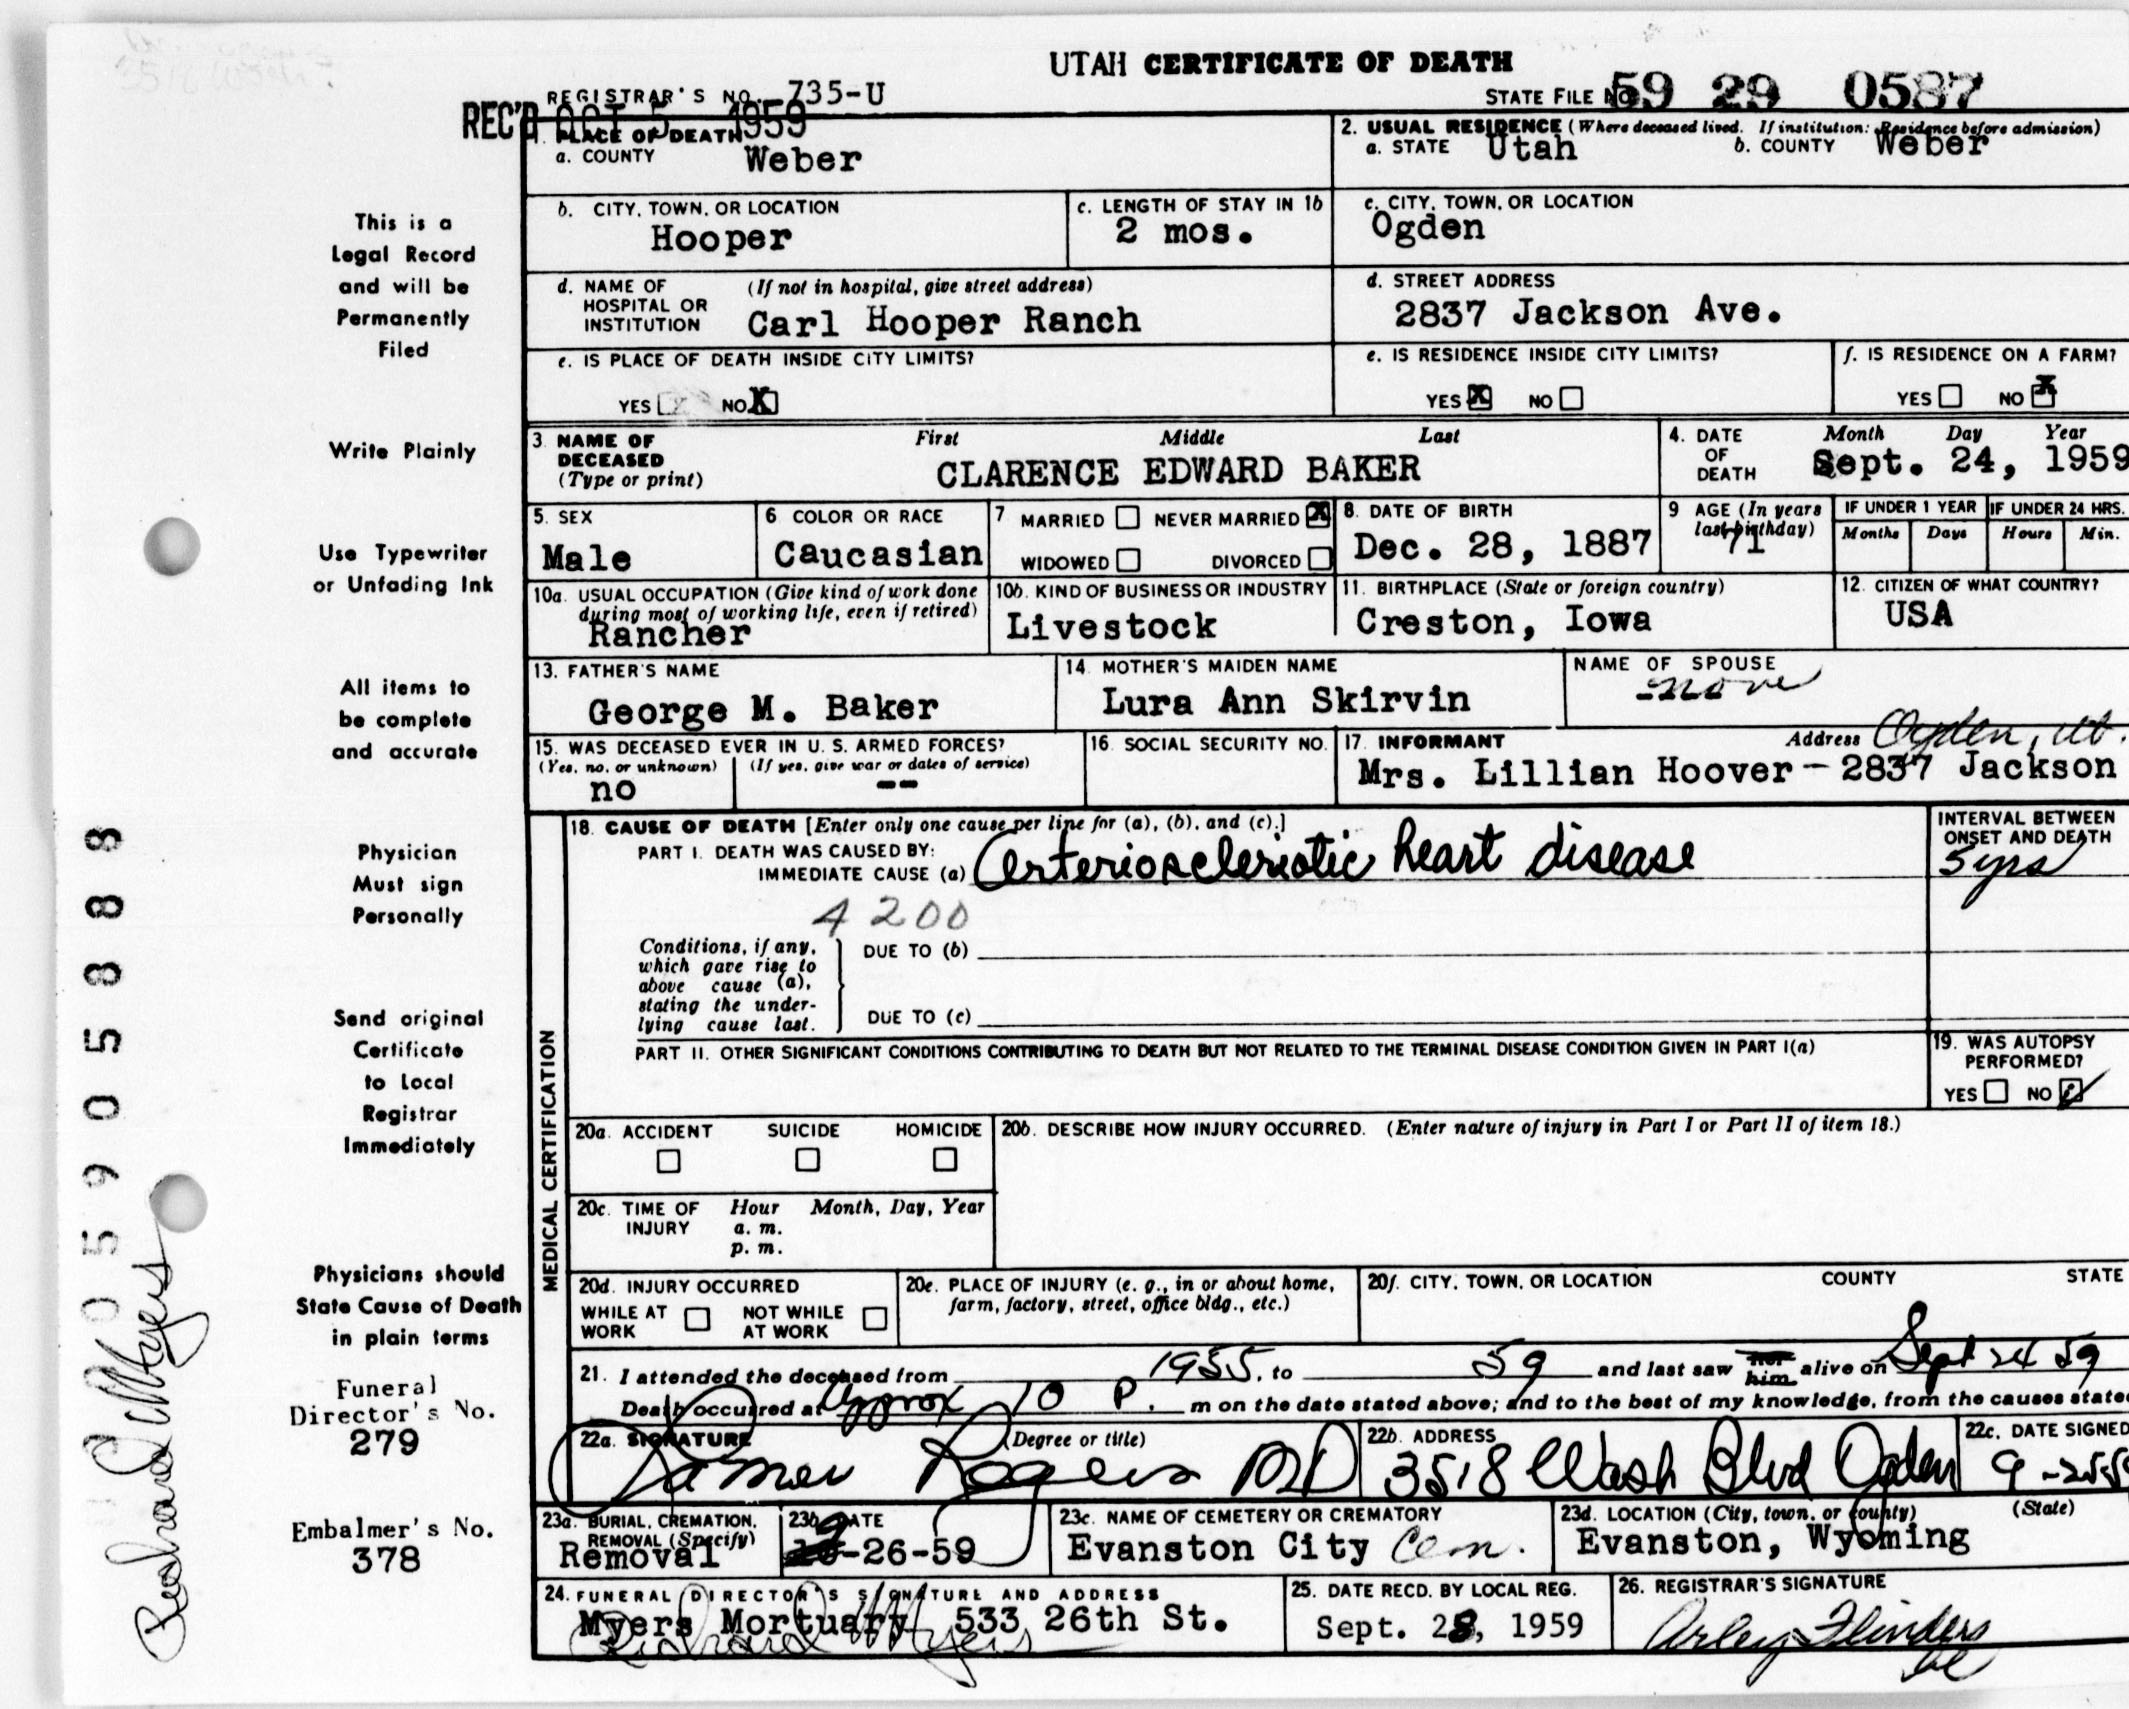 UTAH CERTIFICATE OF DEATH
REGISTRAR'S NO. 735-U
STATE FILE NO. 59 29 0587
REC'D OCT 5 1959
PLACE OF DEATH
a. COUNTY Weber
2. USUAL RESIDENCE (Where deceased lived. If institution: Residence before admission)
a. STATE Utah b. COUNTY Weber
b. CITY, TOWN, OR LOCATION
Hooper
c. LENGTH OF STAY IN 1b
2 mos.
c. CITY, TOWN, OR LOCATION
Ogden
d. NAME OF HOSPITAL OR INSTITUTION (If not in hospital, give street address)
Carl Hooper Ranch
d. STREET ADDRESS
2837 Jackson Ave.
e. IS PLACE OF DEATH INSIDE CITY LIMITS?
YES NO X
e. IS RESIDENCE INSIDE CITY LIMITS?
YES X NO
f. IS RESIDENCE ON A FARM?
YES NO X
3. NAME OF DECEASED (Type or print)
First Middle Last
CLARENCE EDWARD BAKER
4. DATE OF DEATH
Month Day Year
Sept. 24, 1959
5. SEX
Male
6 COLOR OR RACE
Caucasian
7 MARRIED NEVER MARRIED X
WIDOWED DIVORCED
8. DATE OF BIRTH
Dec. 28, 1887
9 AGE (In years last birthday)
71
IF UNDER 1 YEAR
Months Days
IF UNDER 24 HRS.
Hours Min.
10a. USUAL OCCUPATION (Give kind of work done during most of working life, even if retired)
Rancher
10b. KIND OF BUSINESS OR INDUSTRY
Livestock
11. BIRTHPLACE (State or foreign country)
Creston, Iowa
12. CITIZEN OF WHAT COUNTRY?
USA
13. FATHER'S NAME
George M. Baker
14. MOTHER'S MAIDEN NAME
Lura Ann Skirvin
NAME OF SPOUSE
-none
15. WAS DECEASED EVER IN U. S. ARMED FORCES?
(Yes, no, or unknown) (If yes, give war or dates of service)
no --
16. SOCIAL SECURITY NO.
17. INFORMANT Address Ogden, Ut.
Mrs. Lillian Hoover - 2837 Jackson
MEDICAL CERTIFICATION
18. CAUSE OF DEATH [Enter only one cause per line for (a), (b), and (c).]
PART I. DEATH WAS CAUSED BY:
IMMEDIATE CAUSE (a) Arterioscleriotic heart disease
INTERVAL BETWEEN ONSET AND DEATH
5 yrs
4200
Conditions, if any, which gave rise to above cause (a), stating the underlying cause last.
DUE TO (b)
DUE TO (c)
PART II. OTHER SIGNIFICANT CONDITIONS CONTRIBUTING TO DEATH BUT NOT RELATED TO THE TERMINAL DISEASE CONDITION GIVEN IN PART I(a)
19. WAS AUTOPSY PERFORMED?
YES NO
20a. ACCIDENT SUICIDE HOMICIDE
20b. DESCRIBE HOW INJURY OCCURRED. (Enter nature of injury in Part I or Part II of item 18.)
20c. TIME OF INJURY Hour a. m. p. m. Month, Day, Year
20d. INJURY OCCURRED
WHILE AT WORK NOT WHILE AT WORK
20e. PLACE OF INJURY (e. g., in or about home, farm, factory, street, office bldg., etc.)
20f. CITY, TOWN, OR LOCATION COUNTY STATE
21. I attended the deceased from 1955, to 59 and last saw her him alive on Sept 24 59
Death occurred at Approx 10 P. m on the date stated above; and to the best of my knowledge, from the causes state
22a. SIGNATURE (Degree or title)
Rogers MD
22b. ADDRESS
3518 Wash Blvd Ogden
22c. DATE SIGNED
9-25-5
23a. BURIAL, CREMATION, REMOVAL (Specify)
Removal
23b. DATE
9-26-59
23c. NAME OF CEMETERY OR CREMATORY
Evanston City Cem.
23d. LOCATION (City, town, or county) (State)
Evanston, Wyoming
24. FUNERAL DIRECTOR'S SIGNATURE AND ADDRESS
Myers Mortuary 533 26th St.
Richard Myers
25. DATE RECD. BY LOCAL REG.
Sept. 28, 1959
26. REGISTRAR'S SIGNATURE
Arley Flinders
This is a
Legal Record
and will be
Permanently
Filed
Write Plainly
Use Typewriter
or Unfading Ink
All items to
be complete
and accurate
Physician
Must sign
Personally
Send original
Certificate
to Local
Registrar
Immediately
Physicians should
State Cause of Death
in plain terms
Funeral
Director's No.
279
Embalmer's No.
378
0 5 9 0 5 8 8 8
Richard Myers